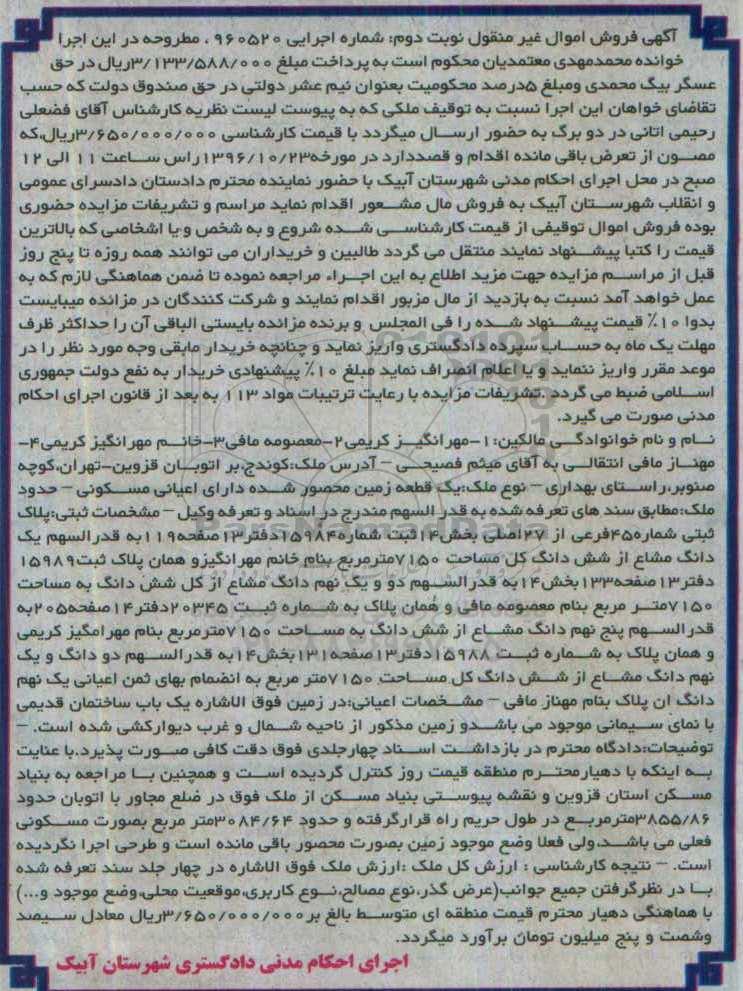 آگهی فروش اموال غیر منقول نوبت دوم: شماره اجرایی ۹۶۰۵۲۰ ، مطروحه در این اجرا
خوانده محمدمهدی معتمدیان محکوم است به پرداخت مبلغ ۳/۱۳۳/۵۸۸/۰۰۰ریال در حق
عسگر بیگ محمدی ومبلغ ۵درصد محکومیت بعنوان نیم عشر دولتی در حق صندوق دولت که حسب
تقاضای خواهان این اجرا نسبت به توقیف ملکی که به پیوست لیست نظریه کارشناس آقای فضعلی
رحیمی اتانی در دو برگ به حضور ارسال میگردد با قیمت کارشناسی ۳/۶۵۰/۰۰۰/۰۰۰ریال،که
مصون از تعرض باقی مانده اقدام و قصددارد در مورخه۱۳۹۶/۱۰/۲۳راس ساعت ۱۱ الی ۱۲
صبح در محل اجرای احکام مدنی شهرستان آبیک با حضور نماینده محترم دادستان دادسرای عمومی
و انقلاب شهرستان آبیک به فروش مال مشعور اقدام نماید مراسم و تشریفات مزایده حضوری
بوده فروش اموال توقیفی از قیمت کارشناسی شده شروع و به شخص و یا اشخاصی که بالاترین
قیمت را کتبا پیشنهاد نمایند منتقل می گردد طالبین و خریداران می توانند همه روزه تا پنج روز
قبل از مراسم مزایده جهت مزید اطلاع به این اجراء مراجعه نموده تا ضمن هماهنگی لازم که به
عمل خواهد آمد نسبت به بازدید از مال مزبور اقدام نمایند و شرکت کنندگان در مزانده میبایست
بدوا ۱۰٪ قیمت پیشنهاد شده را فی المجلس و برنده مزانده بایستی الباقی آن را حداکثر ظرف
مهلت یک ماه به حساب سپرده دادگستری واریز نماید و چنانچه خریدار مابقی وجه مورد نظر را در
موعد مقرر واریز ننماید و یا اعلام انصراف نماید مبلغ ۱۰٪ پیشنهادی خریدار به نفع دولت جمهوری
اسلامی ضبط می گردد .تشریفات مزایده با رعایت ترتیبات مواد ۱۱۳ به بعد از قانون اجرای احکام
مدنی صورت می گیرد.
نام و نام خوانوادگی مالکین:۱-مهرانگیز کریمی۲-معصومه مافی۳-خانم مهرانگیز کریمی۴-
مهناز مافی انتقالی به آقای میثم فصیحی – آدرس ملک:کوندج،بر اتوبان قزوین-تهران،کوچه
صنوبر،راستای بهداری – نوع ملک:یک قطعه زمین محصور شده دارای اعیانی مسکونی – حدود
ملک:مطابق سند های تعرفه شده به قدر السهم مندرج در اسناد و تعرفه وکیل – مشخصات ثبتی:پلاک
ثبتی شماره۴۵فرعی از ۲۷اصلی بخش۱۴ثبت شماره۱۵۹۸۴دفتر۱۳صفحه۱۱۹به قدرالسهم یک
دانگ مشاع از شش دانگ کل مساحت ۷۱۵۰مترمربع بنام خانم مهرانگیزو همان پلاک ثبت۱۵۹۸۹
دفتر۱۳صفحه۱۳۳بخش۱۴به قدرالسهم دو و یک نهم دانگ مشاع از کل شش دانگ به مساحت
۷۱۵۰متر مربع بنام معصومه مافی و همان پلاک به شماره ثبت ۲۰۳۴۵دفتر۱۴صفحه۲۰۵به
قدرالسهم پنج نهم دانگ مشاع از شش دانگ به مساحت ۷۱۵۰مترمربع بنام مهرامگیز کریمی
و همان پلاک به شماره ثبت ۱۵۹۸۸دفتر۱۳صفحه۱۳۱بخش۱۴به قدرالسهم دو دانگ و یک
نهم دانگ مشاع از شش دانگ کل مساحت ۷۱۵۰متر مربع به انضمام بهای ثمن اعیانی یک نهم
دانگ ان پلاک بنام مهناز مافی – مشخصات اعیانی:در زمین فوق الاشاره یک باب ساختمان قدیمی
با نمای سیمانی موجود می باشدو زمین مذکور از ناحیه شمال و غرب دیوارکشی شده است. –
توضیحات:دادگاه محترم در بازداشت اسناد چهارجلدی فوق دقت کافی صورت پذیرد.با عنایت
به اینکه با دهیارمحترم منطقه قیمت روز کنترل گردیده است و همچنین با مراجعه به بنیاد
مسکن استان قزوین و نقشه پیوستی بنیاد مسکن از ملک فوق در ضلع مجاور با اتوبان حدود
۳۸۵۵/۸۶مترمربع در طول حریم راه قرارگرفته و حدود ۳۰۸۴/۶۴متر مربع بصورت مسکونی
فعلی می باشد،ولی فعلا وضع موجود زمین بصورت محصور باقی مانده است و طرحی اجرا نگردیده
است. – نتیجه کارشناسی : ارزش کل ملک :ارزش ملک فوق الاشاره در چهار جلد سند تعرفه شده
با در نظرگرفتن جمیع جوانب(عرض گذر،نوع مصالح،نوع کاربری،موقعیت محلی،وضع موجود و...)
با هماهنگی دهیار محترم قیمت منطقه ای متوسط بالغ بر۳/۶۵۰/۰۰۰/۰۰۰ریال معادل سیصد
وشصت و پنج میلیون تومان برآورد میگردد.
اجرای احکام مدنی دادگستری شهرستان آبیک
ParsNamadData